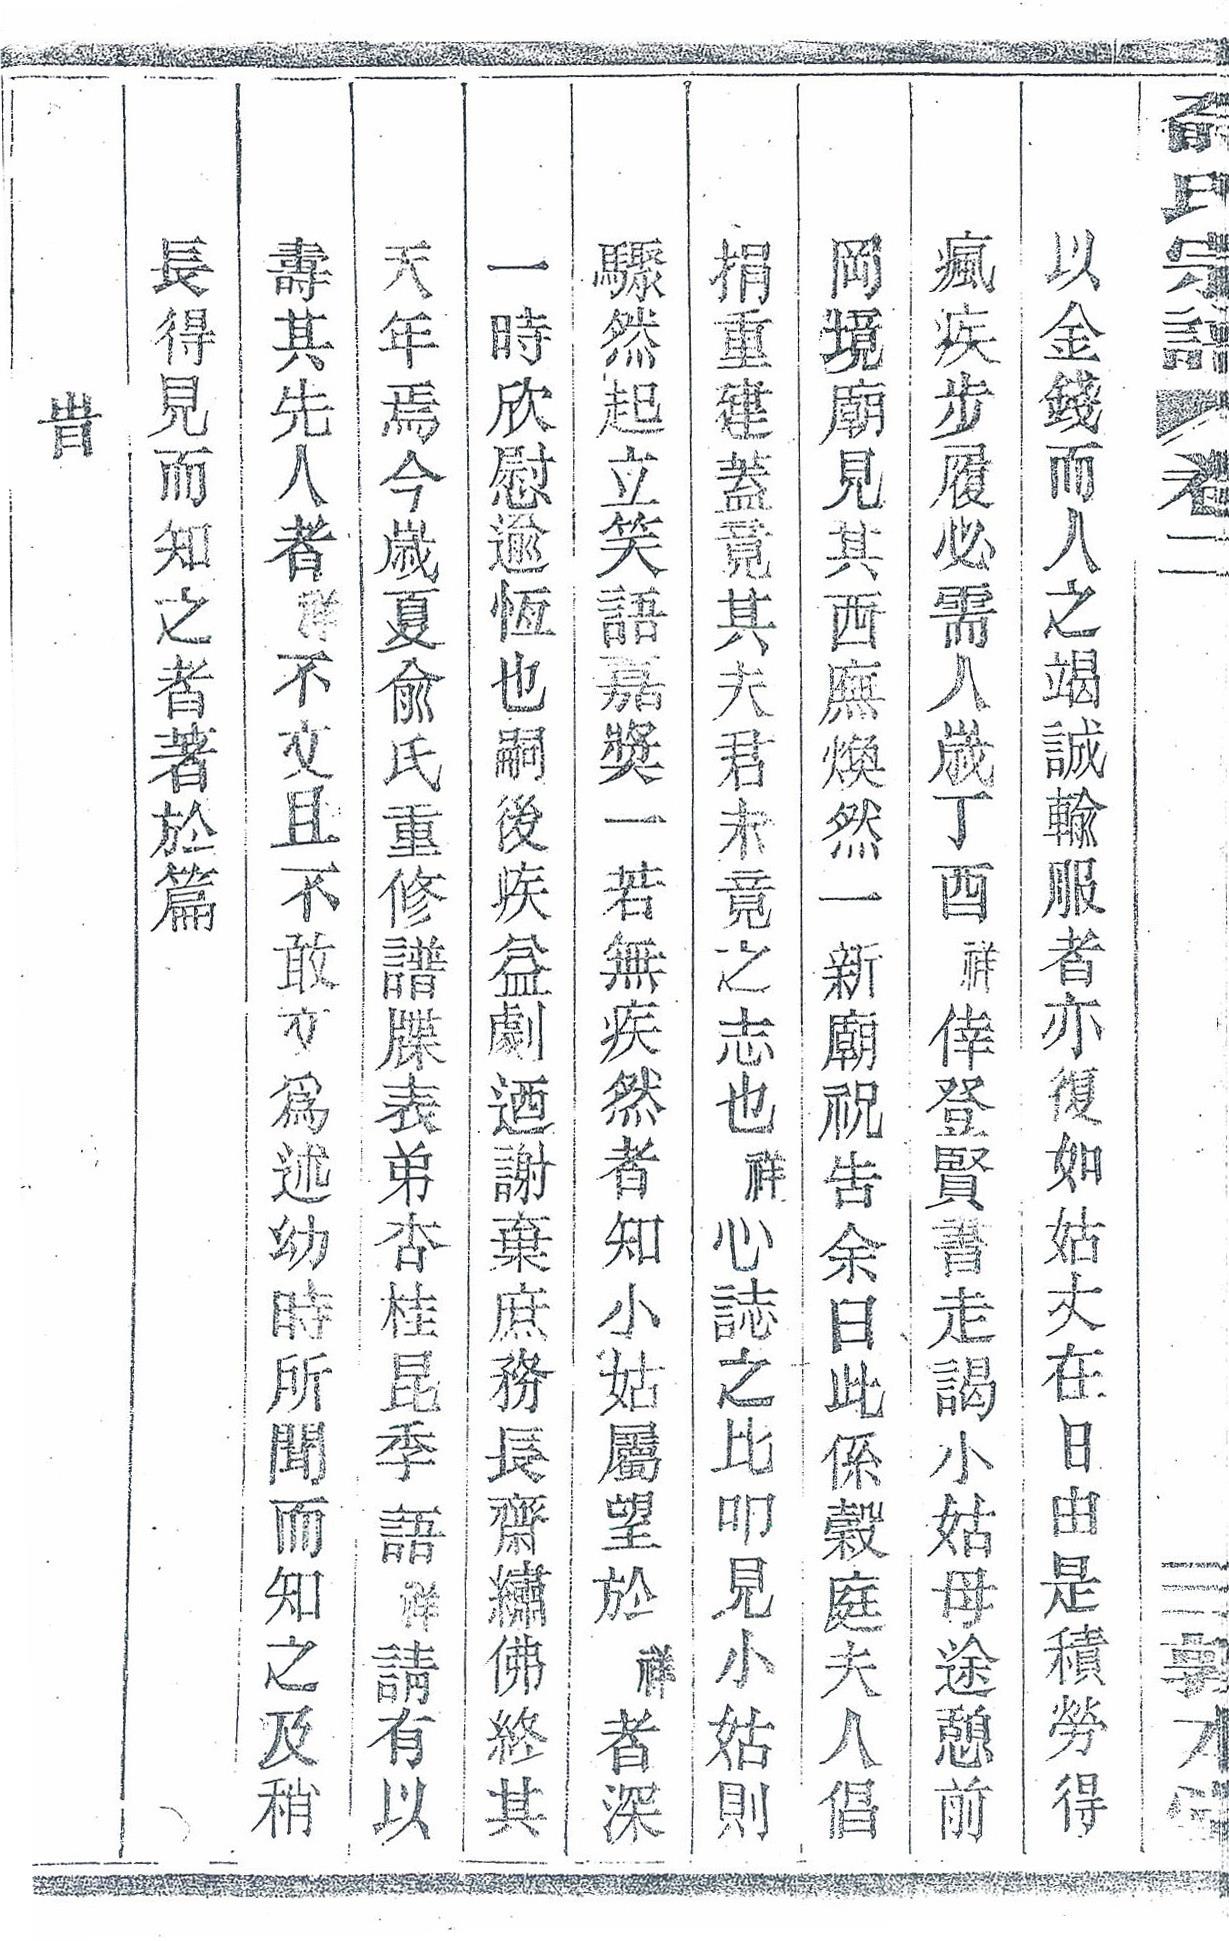 氏宗譜 卷二
以金錢而人之竭誠輸服者亦復如姑夫在日由是積勞得
瘋疾步履必需人歲丁酉祥倖登賢書走謁小姑母途憩前
岡境廟見其西廡煥然一新廟祝告余曰此係穀庭夫人倡
捐重建蓋竟其夫君未竟之志也祥心誌之比叩見小姑則
驟然起立笑語嘉獎一若無疾然者知小姑屬望於祥者深
一時欣慰逾恆也嗣後疾益劇迺謝棄庶務長齋繡佛終其
天年焉今歲夏俞氏重修譜牒表弟杏桂昆季語祥請有以
壽其先人者祥不文且不敢文爲述幼時所聞而知之及稍
長得見而知之者著於篇
旹